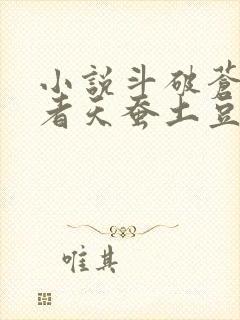 小說斗破蒼
者天蚕土豆
唯其